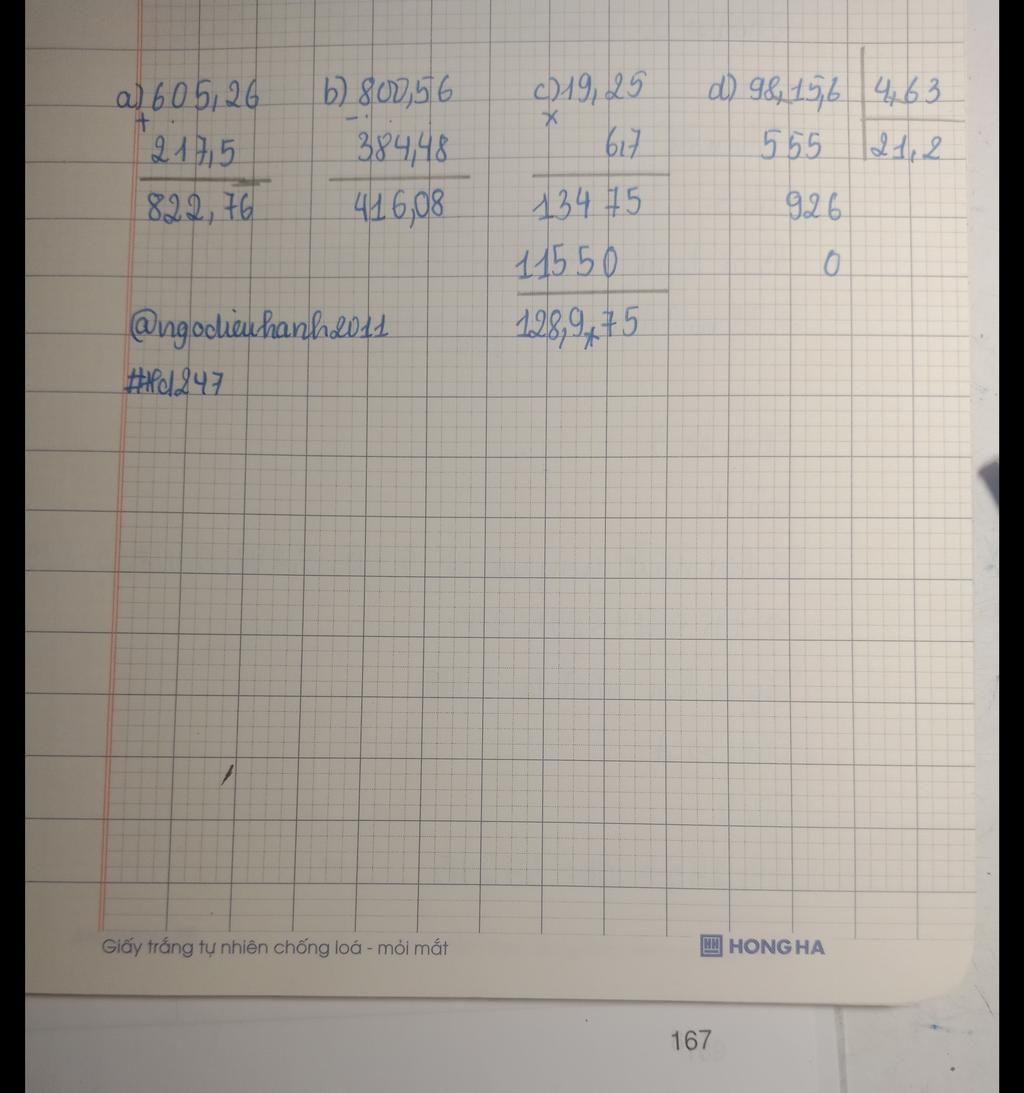 a) 605,26 b) 800,56 c) 19,25 d) 98,15,6 4,63
+ - x
217,5 384,48 6,7 555 21,2
822,76 416,08 13475 926
11550 0
@ngocdieuhanh2011 128,9,75
247
Giấy trắng tự nhiên chống loá - mỏi mắt HH HONG HA
167